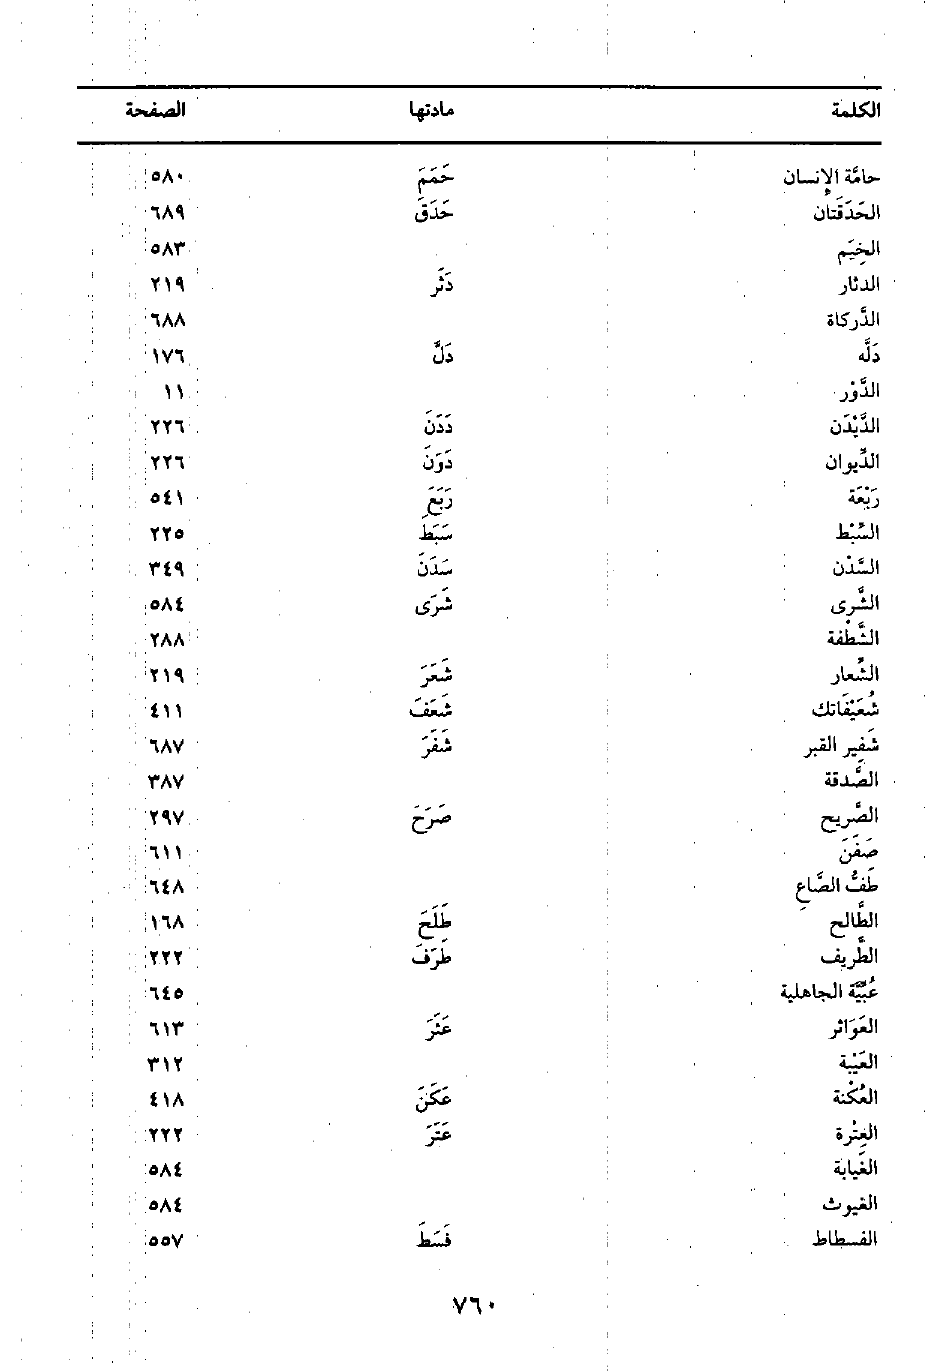 الكلمة مادتها الصفحة
حامَّة الإنسان حَمَمَ ٥٨٠
الحَدَقَتَان حَدَقَ ٦٨٩
الخِيَم ٥٨٣
الدثار دَثَر ٢١٩
الدَّركاة ٦٨٨
دَلَّه دَلَّ ١٧٦
الدَّوْر ١١
الدَّيْدَن دَدَنَ ٢٢٦
الدِّيوان دَوَنَ ٢٢٦
رَبْعَة رَبَعَ ٥٤١
السِّبْط سَبَطَ ٢٢٥
السَّدْن سَدَنَ ٣٤٩
الشَّرى شَرَى ٥٨٤
الشَّطْفة ٢٨٨
الشِّعار شَعَرَ ٢١٩
شُعَيْفَاتك شَعَفَ ٤١١
شَفِير القبر شَفَرَ ٦٨٧
الصَّدقة ٣٨٧
الصَّريح صَرَحَ ٢٩٧
صَفَنَ ٦١١
طَفُّ الصَّاعِ ٦٤٨
الطَّالح طَلَحَ ١٦٨
الطَّريف طَرَفَ ٢٢٢
عُبِّيَّة الجاهلية ٦٤٥
العَوَاثر عَثَرَ ٦١٣
العَيْبة ٣١٢
العُكْنة عَكَنَ ٤١٨
العِتْرة عَتَرَ ٢٢٢
الغَيابة ٥٨٤
الغيوث ٥٨٤
الفسطاط فَسَطَ ٥٥٧
٧٦٠